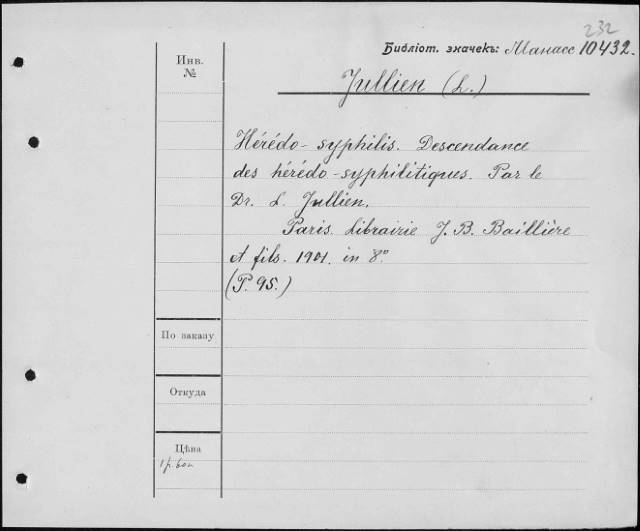 232
Библіот. значекъ: Манасс 10432.
Инв.
№
Jullien (L.)
Hérédo-syphilis. Descendance
des hérédo-syphilitiques. Par le
Dr. L. Jullien.
Paris. Librairie J. B. Baillière
et fils. 1901. in 8º
(P. 95.)
По заказу
Откуда
Цѣна
1 р. 60 к